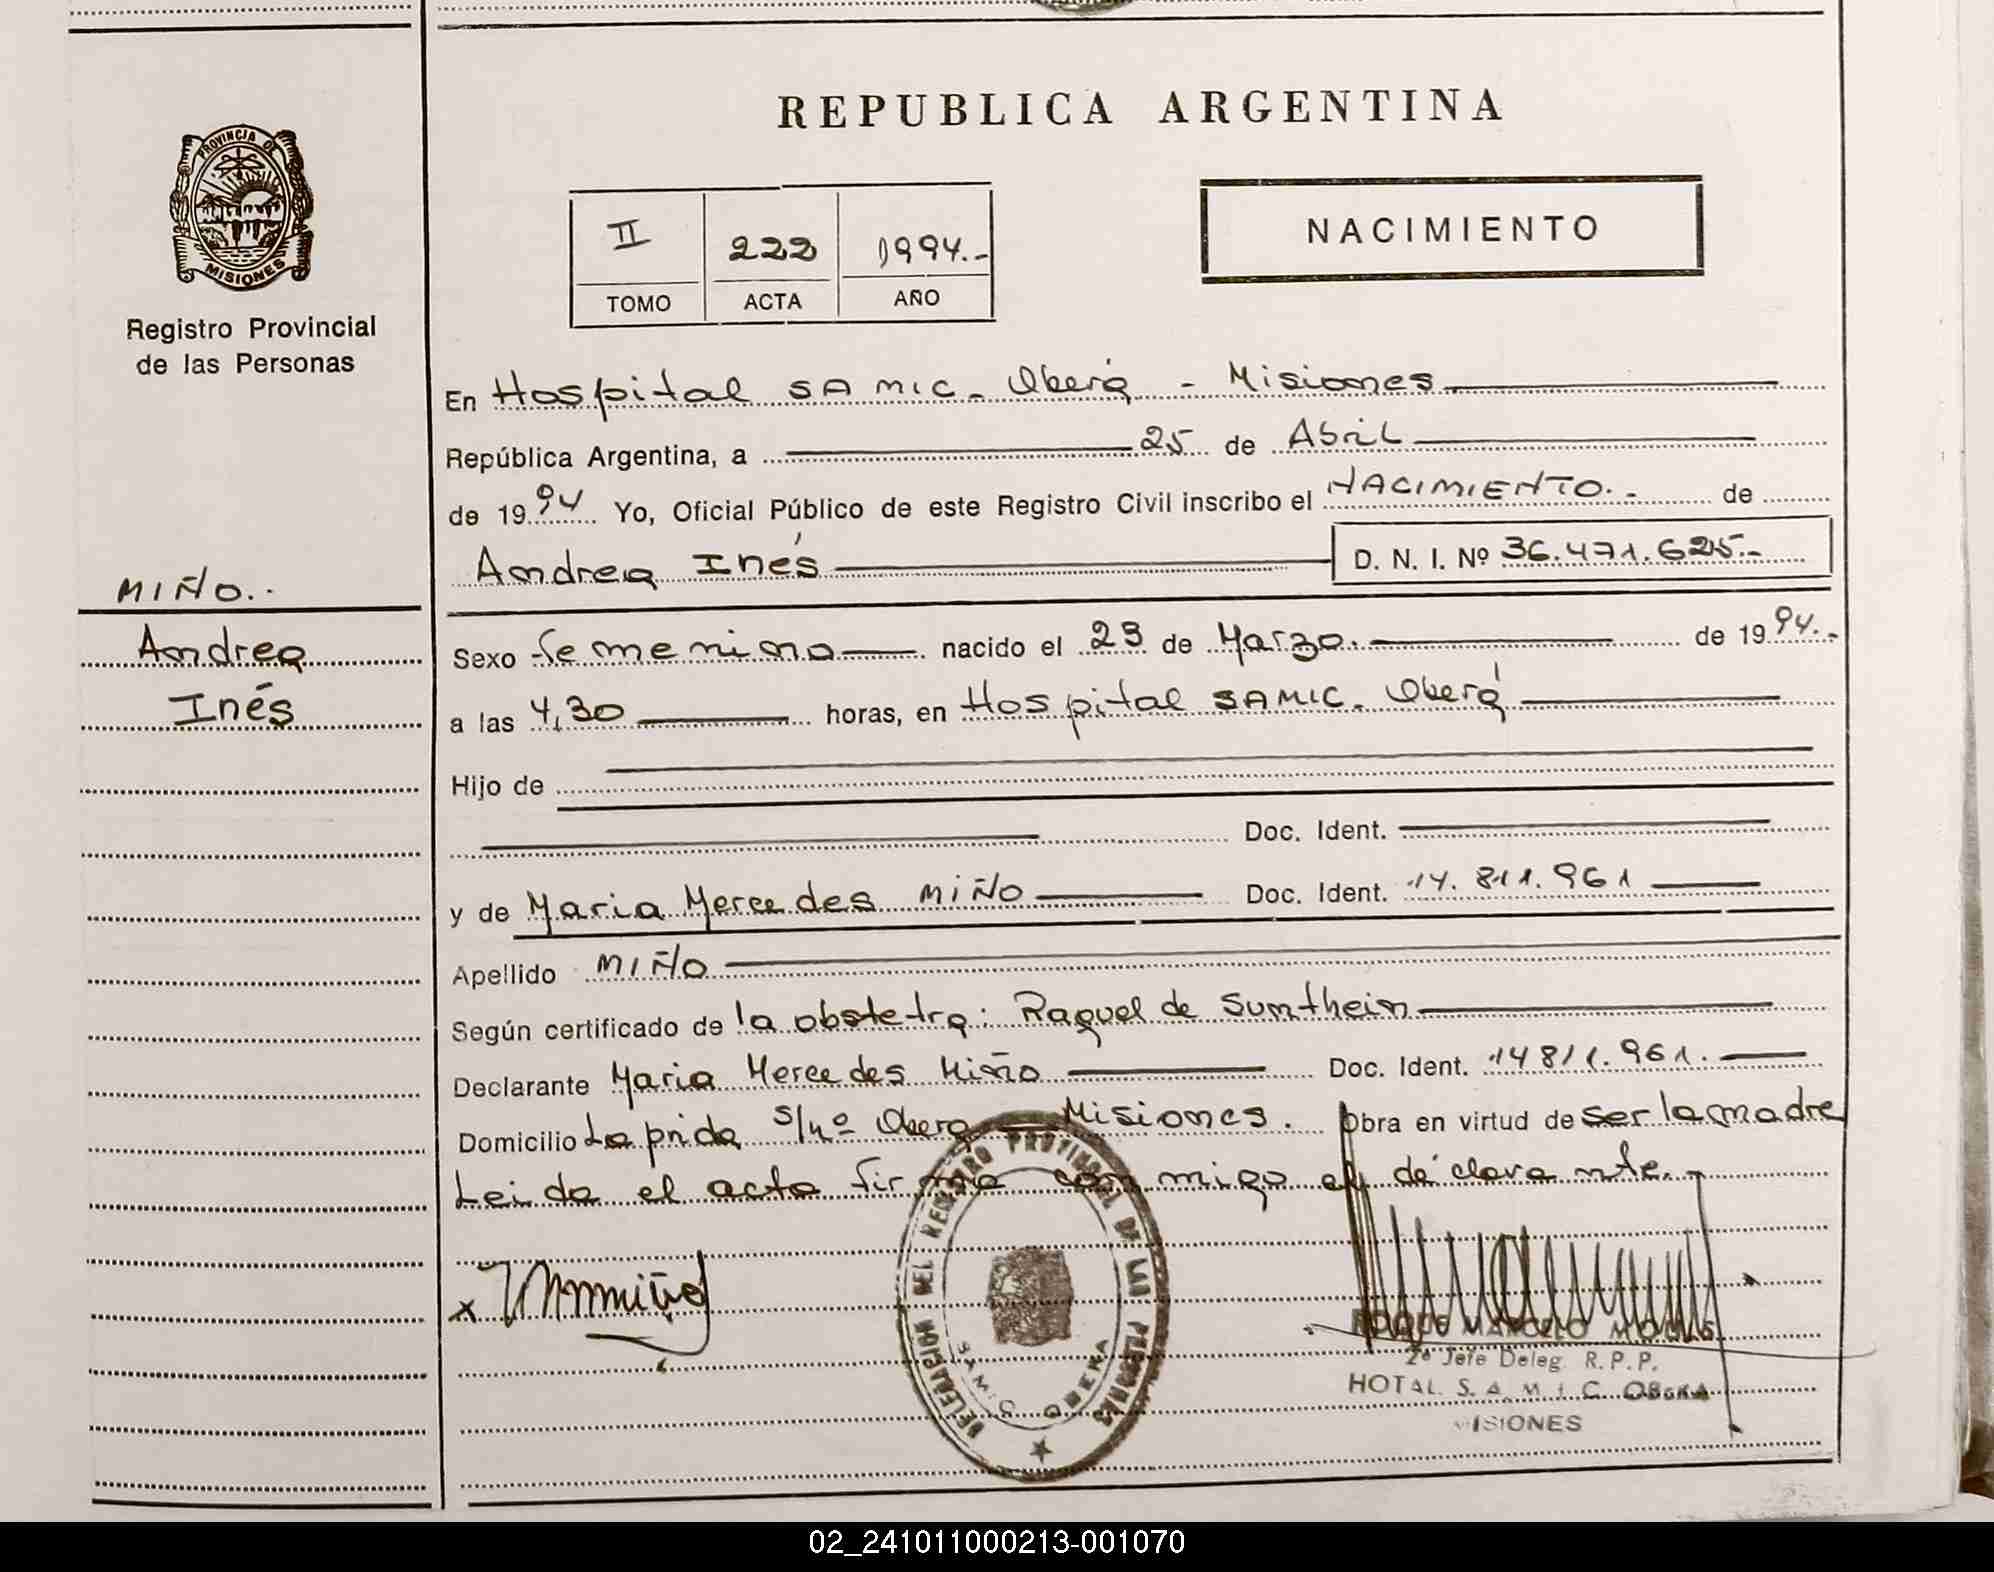 REPUBLICA ARGENTINA
PROVINCIA DE
MISIONES
Registro Provincial
de las Personas
II 222 1994.-
TOMO ACTA AÑO
NACIMIENTO
En Hospital SAMIC. Oberá - Misiones
República Argentina, a 25 de Abril
de 1994 Yo, Oficial Público de este Registro Civil inscribo el NACIMIENTO.- de
Andrea Inés D. N. I. Nº 36.471.625.-
MIÑO..
Andrea
Inés
Sexo femenino nacido el 23 de Marzo. de 1994.-
a las 4,30 horas, en Hospital SAMIC. Oberá
Hijo de
Doc. Ident.
y de Maria Mercedes MIÑO Doc. Ident. 14.811.961
Apellido MIÑO
Según certificado de la obstetra: Raquel de Sumthein
Declarante Maria Mercedes Miño Doc. Ident. 14811.961.
Domicilio Laprida S/nº Oberá - Misiones. Obra en virtud de ser la madre
Leida el acta firma conmigo el declarante.-
x Mmmiño
DELEGACION DEL REGISTRO PROVINCIAL DE LAS PERSONAS
SAMIC OBERA
2º Jefe Deleg. R.P.P.
HOTAL. S.A.M.I.C. OBERA
MISIONES
02_241011000213-001070